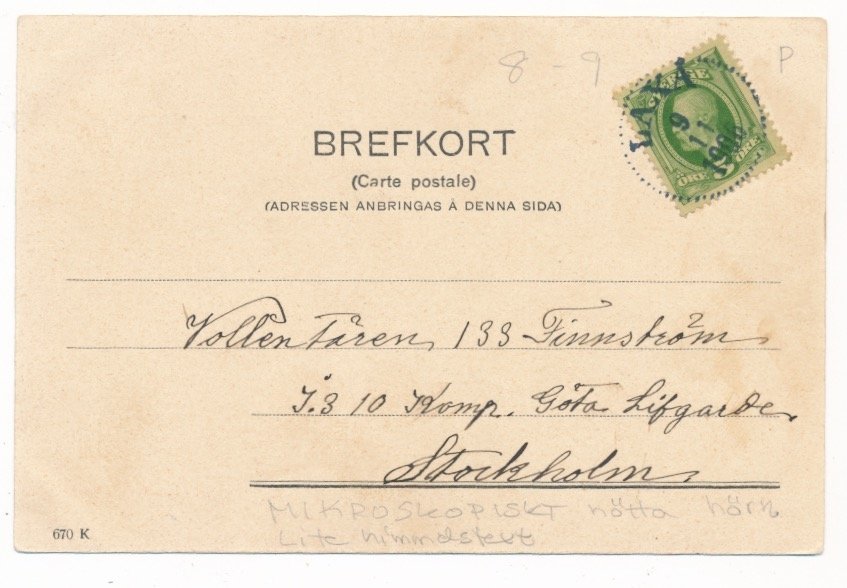 8 - 9 P
LAXÅ
9
11
BREFKORT
(Carte postale)
(ADRESSEN ANBRINGAS Å DENNA SIDA)
Vollentären 133 Finnström
10 Komp. Göta Lifgarde
Stockholm
MIKROSKOPISKT nötta hörn
Lite
670 K